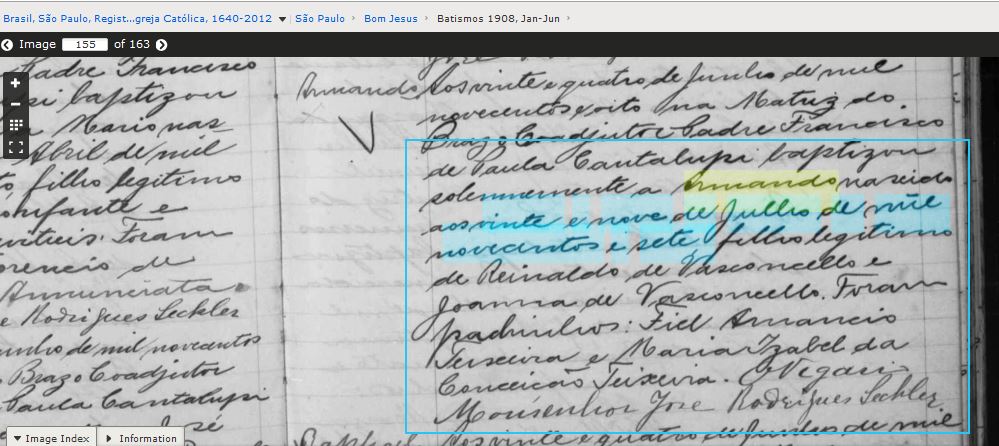 Brasil, São Paulo, Regist...greja Católica, 1640-2012 ▼ | São Paulo › Bom Jesus › Batismos 1908, Jan-Jun ›
Image 155 of 163
Padre Francisco
baptizou
Mario nas
Abril de mil
filho legitimo
e
Foram
de
Annunciata
e Rodrigues Seckler
junho de mil novecentos
Brazo Coadjutor
Paula Cantalupi
José
Armando
Aos vinte e quatro de Junho de mil
novecentos e oito na Matriz do
Brazo Coadjutor Padre Francisco
de Paula Cantalupi baptizou
solemnemente a Armando nascido
aos vinte e nove de Julho de mil
novecentos e sete, filho legitimo
de Reinaldo de Vasconcello e
Joanna de Vasconcello. Foram
padrinhos: Fiel Amancio
Teixeira e Maria Izabel da
Conceição Teixeira. O Vigario
Monsenhor José Rodrigues Seckler
Raphael
Aos vinte e quatro de Junho de mil
▼ Image Index
▶ Information